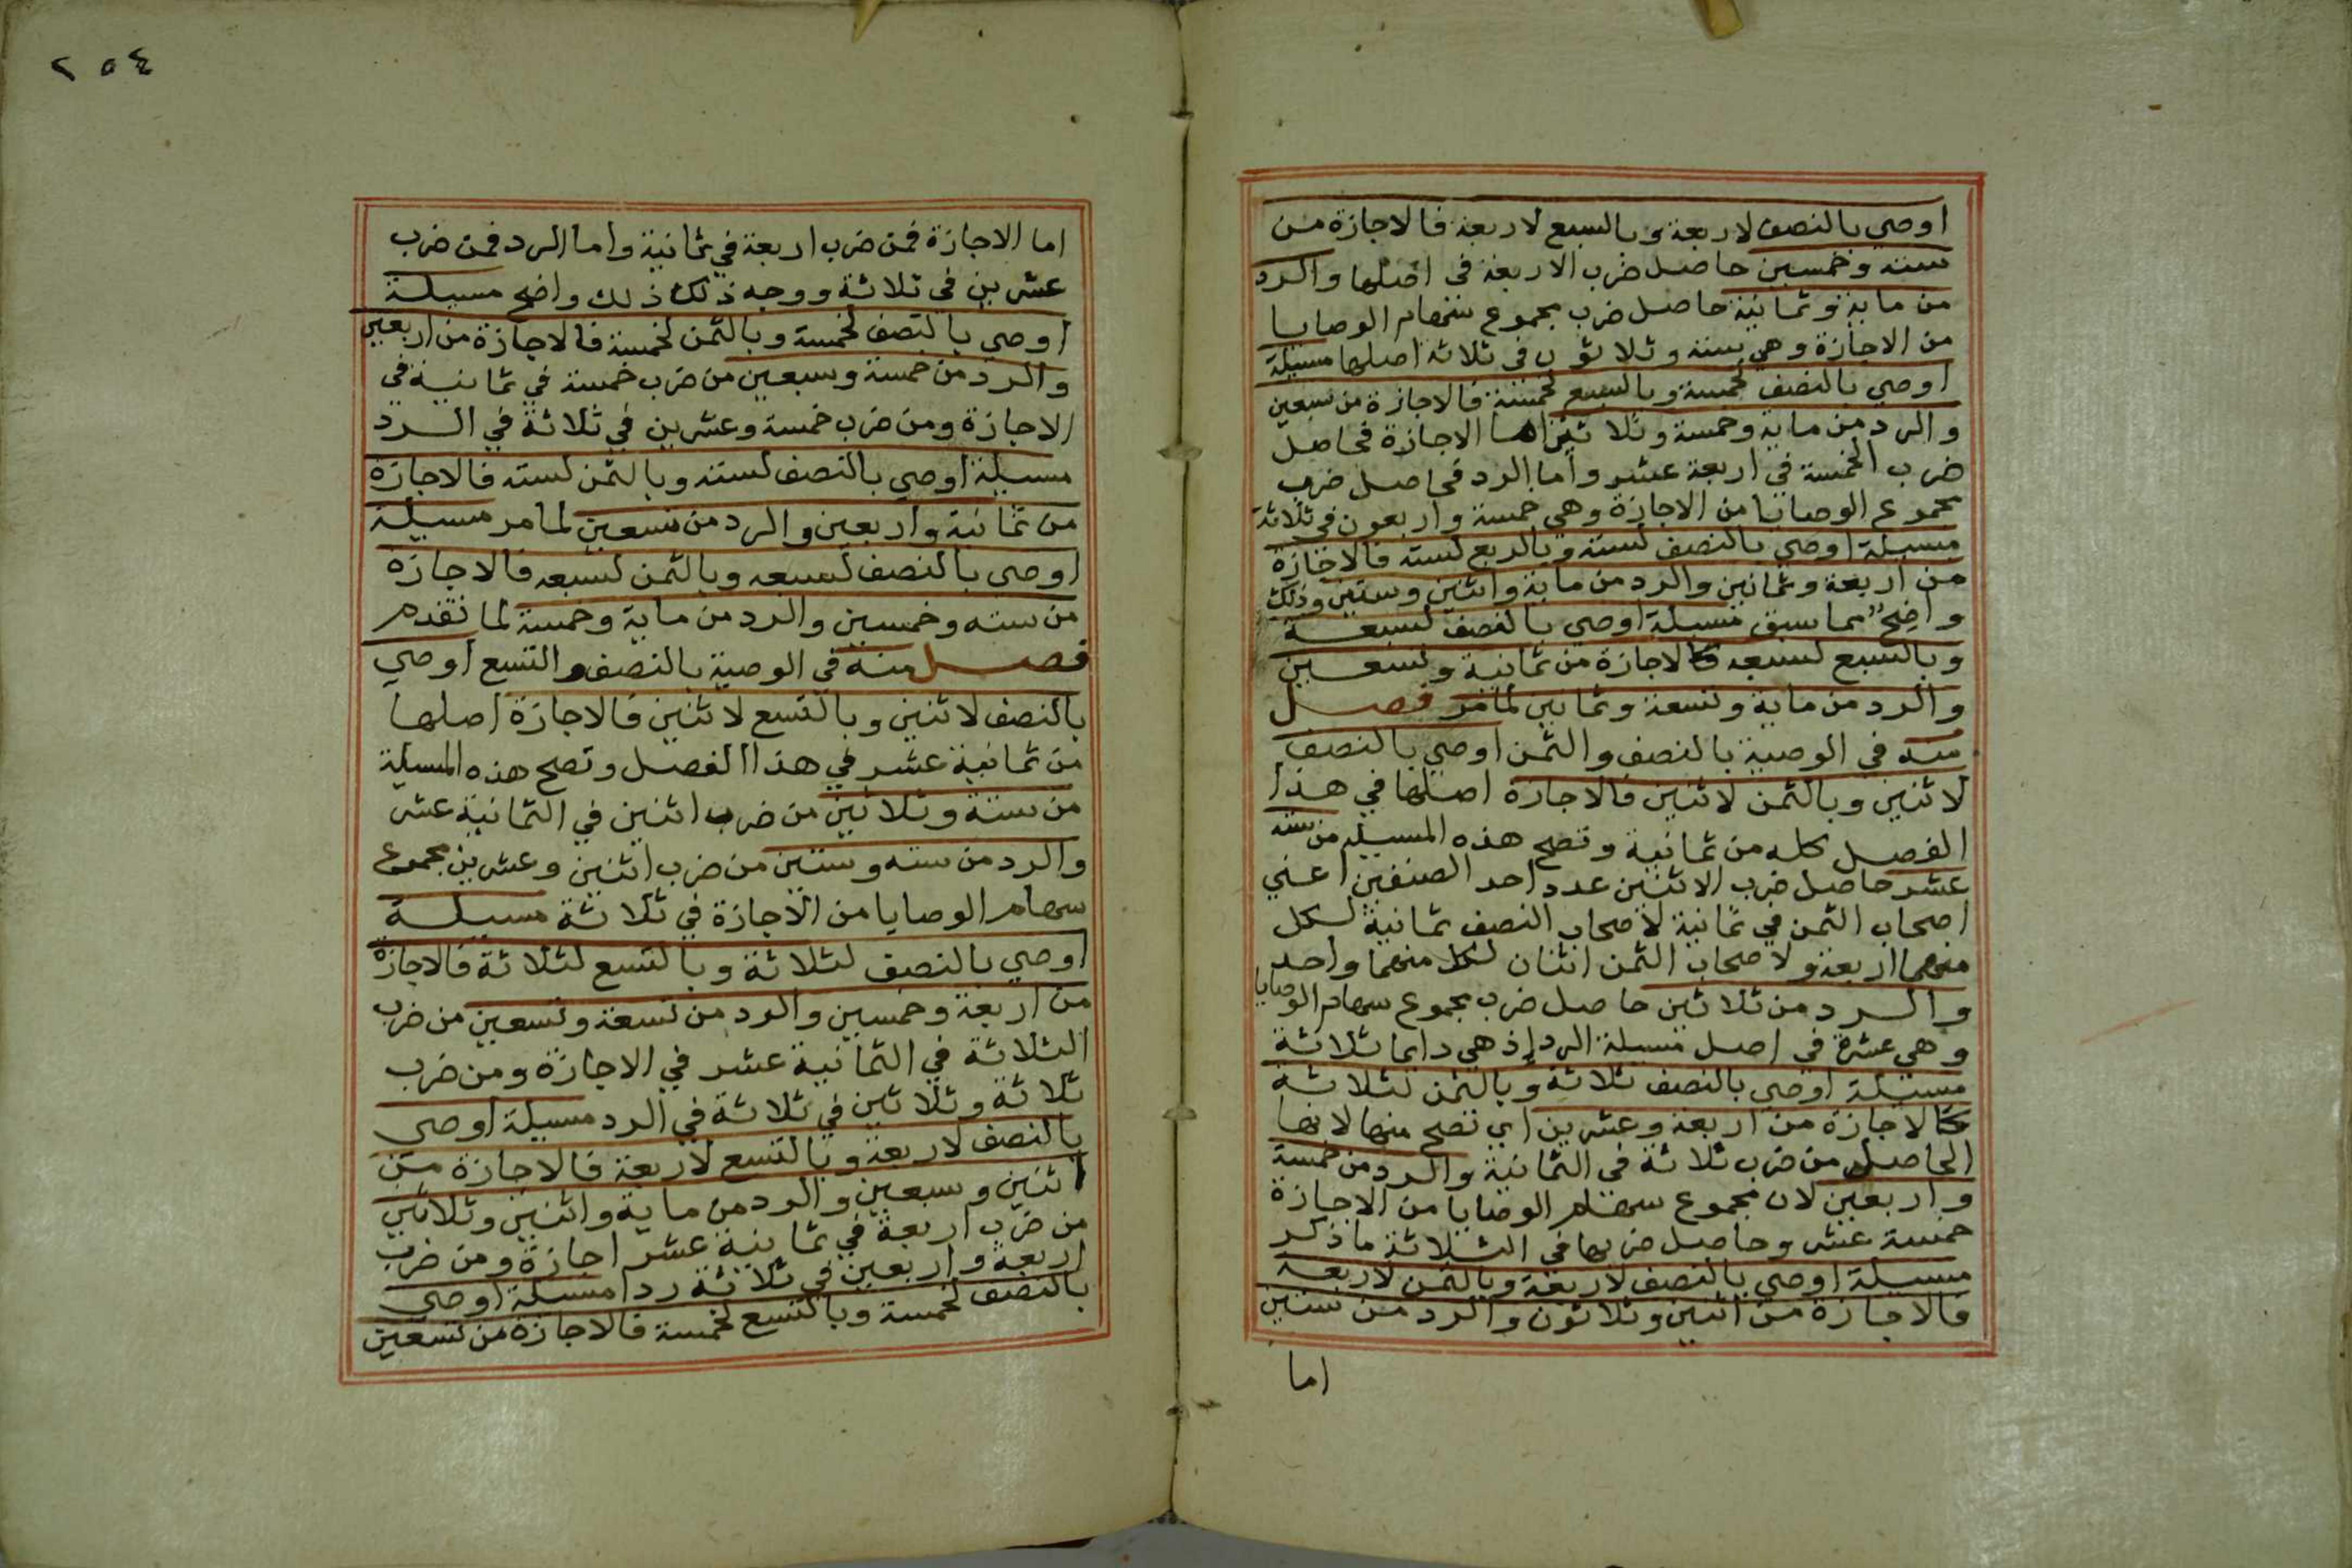 اوصي بالنصف لاربعة وبالسبع لاربعة فالاجازة من
ستة وخمسين حاصل ضرب الاربعة في اصلها والرد
من ماية وثمانية حاصل ضرب مجموع سهام الوصايا
من الاجازة وهي ستة وثلاثون في ثلاثة اصلها مسيلة
اوصي بالنصف لخمسة وبالسبع لخمسة فالاجازة من سبعين
والرد من ماية وخمسة وثلاثين اما الاجازة فحاصل
ضرب الخمسة في اربعة عشر واما الرد فحاصل ضرب
مجموع الوصايا من الاجازة وهي خمسة واربعون في ثلاثة
مسيلة اوصي بالنصف لستة وبالربع لستة فالاجازة
من اربعة وثمانين والرد من ماية واثنين وستين وذلك
واضح مما سبق مسيلة اوصي بالنصف لسبعة
وبالسبع لسبعه فالاجازة من ثمانية وتسعين
والرد من ماية وتسعة وثمانين لمامر فصل
منه في الوصية بالنصف والثمن اوصي بالنصف
لاثنين وبالثمن لاثنين فالاجازة اصلها في هذا
الفصل كله من ثمانية وتصح هذه المسيله من ستة
عشر حاصل ضرب الاثنين عدد احد الصنفين اعني
اصحاب الثمن في ثمانية لاصحاب النصف ثمانية لكل
منهما اربعة ولاصحاب الثمن اثنان لكل منهما واحد
والرد من ثلاثين حاصل ضرب مجموع سهام الوصايا
وهي عشرة في اصل مسيلة الرد إذ هي دايما ثلاثة
مسيلة اوصي بالنصف ثلاثة وبالثمن لثلاثة
فالاجازة من اربعة وعشرين اي تصح منها لانها
الحاصل من ضرب ثلاثة في الثمانية والرد من خمسة
واربعين لان مجموع سهام الوصايا من الاجازة
خمسة عشر وحاصل ضربها في الثلاثة ماذكر
مسيلة اوصي بالنصف لاربعة وبالثمن لاربعة
فالاجازة من اثنين وثلاثون والرد من ستين
اما
٢٥٤
اما الاجازة فمن ضرب اربعة في ثمانية واما الرد فمن ضرب
عشرين في ثلاثة ووجه ذلك ذلك واضح مسيلة
اوصي بالنصف لخمسة وبالثمن لخمسة فالاجازة من اربعين
والرد من خمسة وسبعين من ضرب خمسة في ثمانية في
الاجازة ومن ضرب خمسة وعشرين في ثلاثة في الرد
مسيلة اوصي بالنصف لسته وبالثمن لسته فالاجازة
من ثمانية واربعين والرد من تسعين لمامر مسيلة
اوصي بالنصف لسبعه وبالثمن لسبعه فالاجازة
من سته وخمسين والرد من ماية وخمسة لما تقدم
فصل منه في الوصية بالنصف والتسع اوصي
بالنصف لاثنين وبالتسع لاثنين فالاجازة اصلها
من ثمانية عشر في هذا الفصل وتصح هذه المسيلة
من ستة وثلاثين من ضرب اثنين في الثمانية عشر
والرد من سته وستين من ضرب اثنين وعشرين مجموع
سهام الوصايا من الاجازة في ثلاثة مسيلة
اوصي بالنصف لثلاثة وبالتسع لثلاثة فالاجازة
من اربعة وخمسين والرد من تسعة وتسعين من ضرب
الثلاثة في الثمانية عشر في الاجازة ومن ضرب
ثلاثة وثلاثين في ثلاثة في الرد مسيلة اوصي
بالنصف لاربعة وبالتسع لاربعة فالاجازة من
اثنين وسبعين والرد من ماية واثنين وثلاثين
من ضرب اربعة في ثمانية عشر اجازة ومن ضرب
اربعة واربعين في ثلاثة ردا مسيلة اوصي
بالنصف لخمسة وبالتسع لخمسة فالاجازة من تسعين